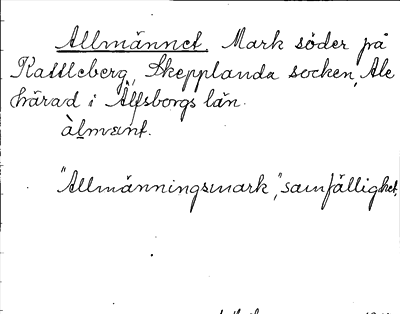 Allmännet. Mark söder på
Kattleberg, Skepplanda socken, Ale
härad i Älfsborgs län.
àlmænt.
"Allmänningsmark", samfällighet.